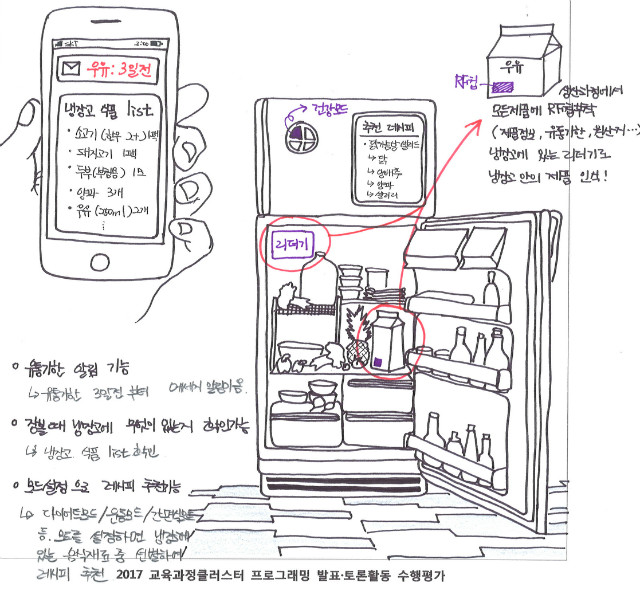 SKT
우유: 3일전
냉장고 식품 list
• 소고기 (한우 2++) 1팩
• 돼지고기 1팩
• 두부(부침용) 1모
• 양파 3개
• 우유 (200ml) 2개
⋮
건강모드
추천 레시피
• 닭가슴살 샐러드
↳ 닭
↳ 양배추
↳ 양파
↳ 샐러리
우유
RF칩
생산과정에서
모든제품에 RF칩부착
(제품정보, 유통기한, 원산지...)
냉장고에 있는 리더기로
냉장고 안의 제품 인식!
리더기
○ 유통기한 알림 기능
↳ 유통기한 3일전 부터
○ 장볼때 냉장고에 무엇이 있는지 확인가능
↳ 냉장고 식품 list 확인
○ 모드설정으로 레시피 추천기능
↳ 다이어트모드/운동모드/간편식모드
등. 모드를 설정하면 냉장고에
있는 음식재료 중 선별하여
레시피 추천
2017 교육과정클러스터 프로그래밍 발표·토론활동 수행평가